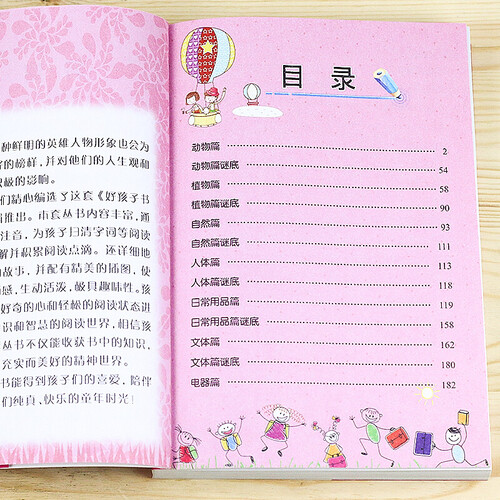 种鲜明的英雄人物形象也公为
的榜样,并对他们的人生观和
极的影响。
们精心编选了这套《好孩子书
推出。本套丛书内容丰富,通
注音,为孩子扫清字词等阅读
解并积累阅读点滴。还详细地
故事,并配有精美的插图,使
感,生动活泼,极具趣味性。孩
好奇的心和轻松的阅读状态进
识和智慧的阅读世界,相信孩
丛书不仅能收获书中的知识,
充实而美好的精神世界。
书能得到孩子们的喜爱,陪伴
们纯真、快乐的童年时光!
目录
动物篇 2
动物篇谜底 54
植物篇 58
植物篇谜底 90
自然篇 93
自然篇谜底 111
人体篇 113
人体篇谜底 118
日常用品篇 119
日常用品篇谜底 158
文体篇 162
文体篇谜底 180
电器篇 182